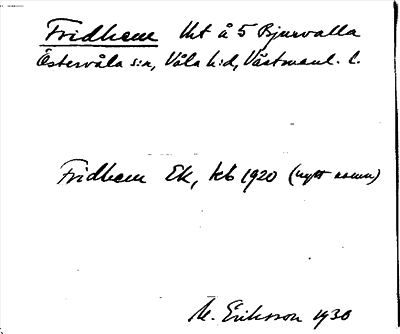 Fridhem lht å 5 Bjurvalla
Östervåla s:n, Våla h:d, Västmanl. l.
Fridhem Ek, kb 1920 (nytt namn)
M. Eriksson 1930